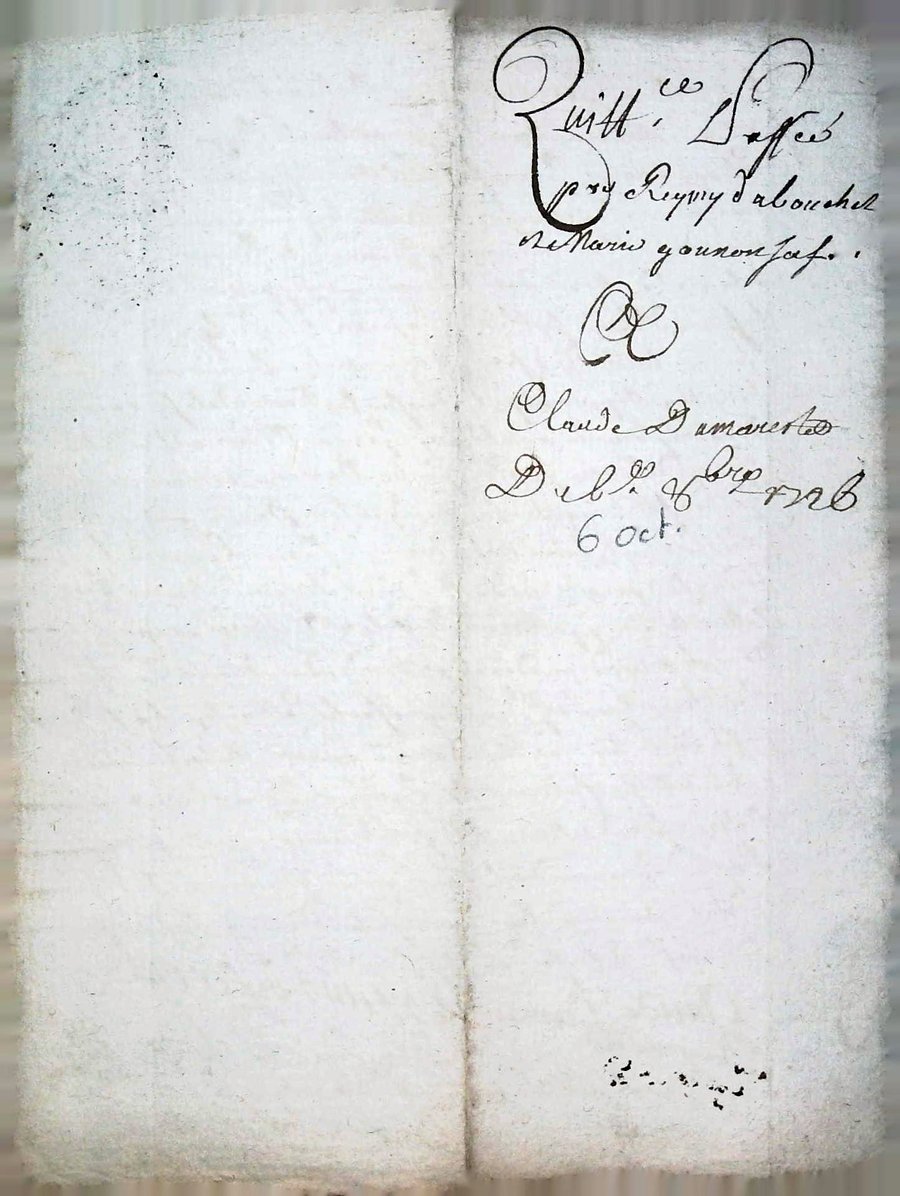 Quitt.ce
par Reymy dabouchet
et Marie gounon sa f.
A
Claude Damareste
Du 6e 8bre 1726
6 oct.